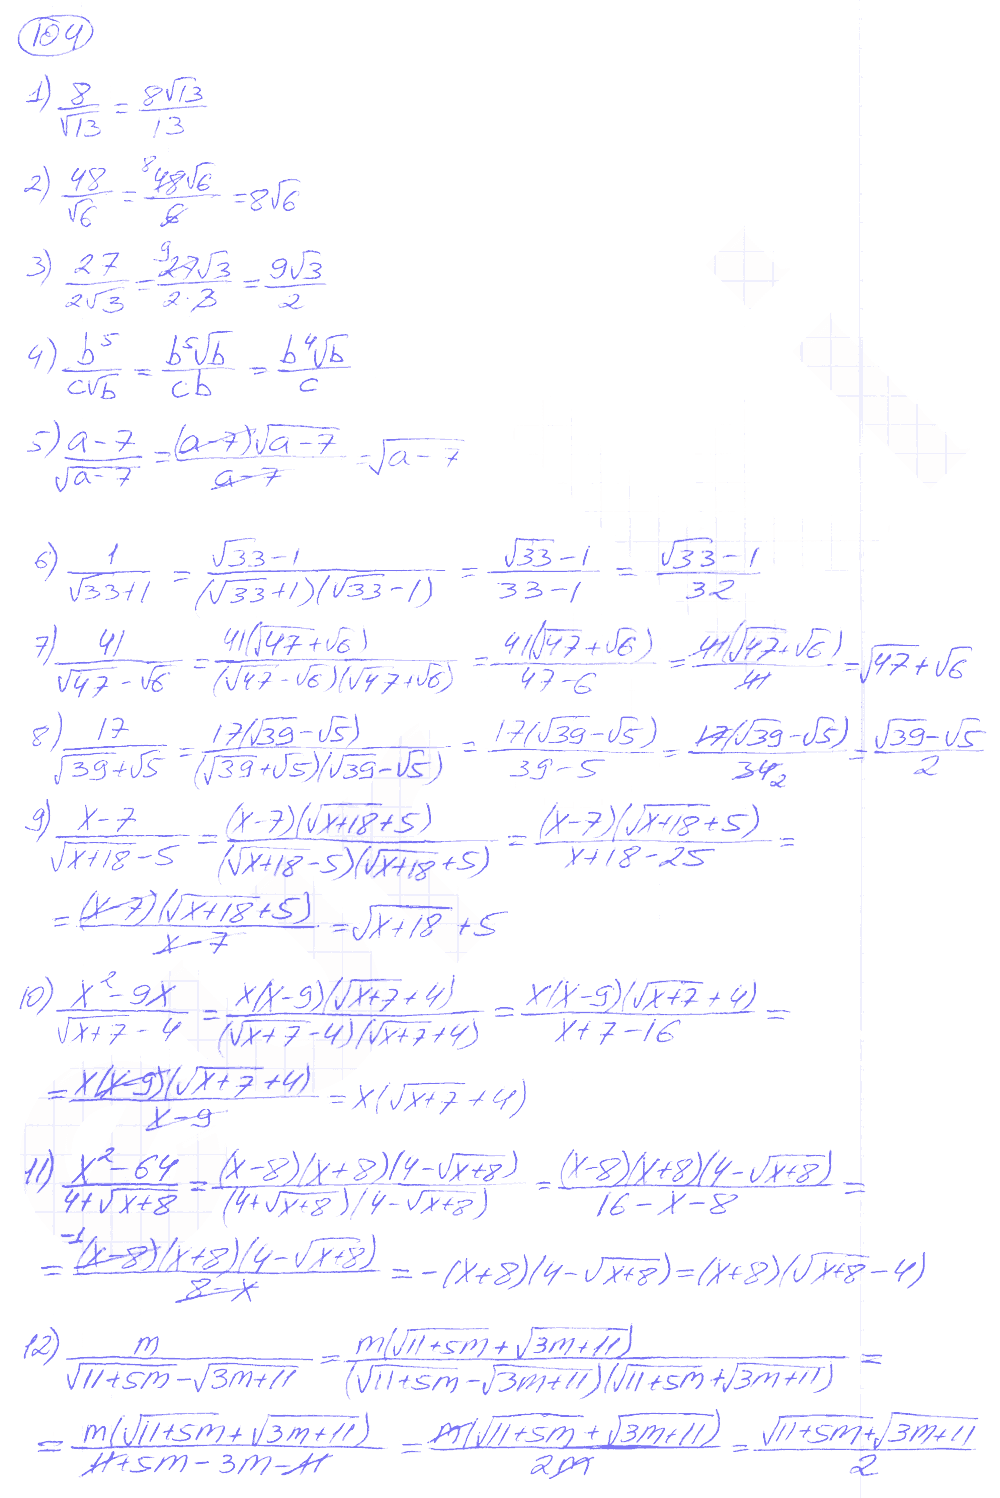 104
1) 8/√13 = 8√13/13
2) 48/√6 = 8 48√6/6 = 8√6
3) 27/2√3 = 9 27√3/2·3 = 9√3/2
4) b⁵/c√b = b⁵√b/cb = b⁴√b/c
5) a-7/√(a-7) = (a-7)√(a-7)/a-7 = √(a-7)
6) 1/√33+1 = √33-1/(√33+1)(√33-1) = √33-1/33-1 = √33-1/32
7) 41/√47-√6 = 41(√47+√6)/(√47-√6)(√47+√6) = 41(√47+√6)/47-6 = 41(√47+√6)/41 = √47+√6
8) 17/√39+√5 = 17(√39-√5)/(√39+√5)(√39-√5) = 17(√39-√5)/39-5 = 17(√39-√5)/34 2 = √39-√5/2
9) x-7/√(x+18)-5 = (x-7)(√(x+18)+5)/(√(x+18)-5)(√(x+18)+5) = (x-7)(√(x+18)+5)/x+18-25 =
= (x-7)(√(x+18)+5)/x-7 = √(x+18)+5
10) x²-9x/√(x+7)-4 = x(x-9)(√(x+7)+4)/(√(x+7)-4)(√(x+7)+4) = x(x-9)(√(x+7)+4)/x+7-16 =
= x(x-9)(√(x+7)+4)/x-9 = x(√(x+7)+4)
11) x²-64/4+√(x+8) = (x-8)(x+8)(4-√(x+8))/(4+√(x+8))(4-√(x+8)) = (x-8)(x+8)(4-√(x+8))/16-x-8 =
= -1 (x-8)(x+8)(4-√(x+8))/8-x = -(x+8)(4-√(x+8)) = (x+8)(√(x+8)-4)
12) m/√(11+5m)-√(3m+11) = m(√(11+5m)+√(3m+11))/(√(11+5m)-√(3m+11))(√(11+5m)+√(3m+11)) =
= m(√(11+5m)+√(3m+11))/11+5m-3m-11 = m(√(11+5m)+√(3m+11))/2m = √(11+5m)+√(3m+11)/2